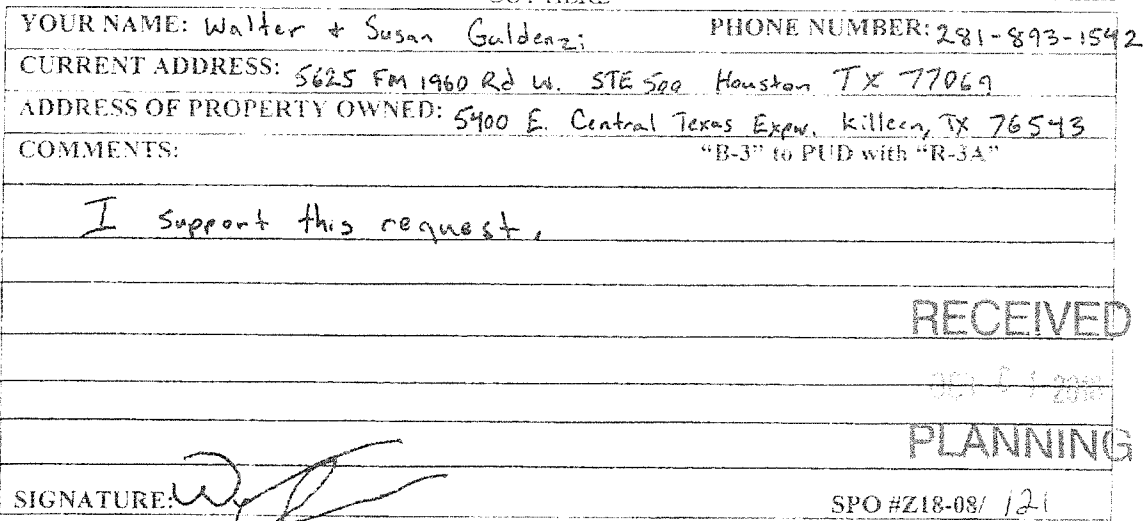 YOUR NAME: Walter + Susan Guldenzi PHONE NUMBER: 281-893-1542
CURRENT ADDRESS: 5625 FM 1960 Rd W. STE 500 Houston TX 77069
ADDRESS OF PROPERTY OWNED: 5400 E. Central Texas Expw. Killeen, TX 76543
COMMENTS: "B-3" to PUD with "R-3A"
I support this request.
RECEIVED
OCT 2018
PLANNING
SIGNATURE: SPO #Z18-08/ 121